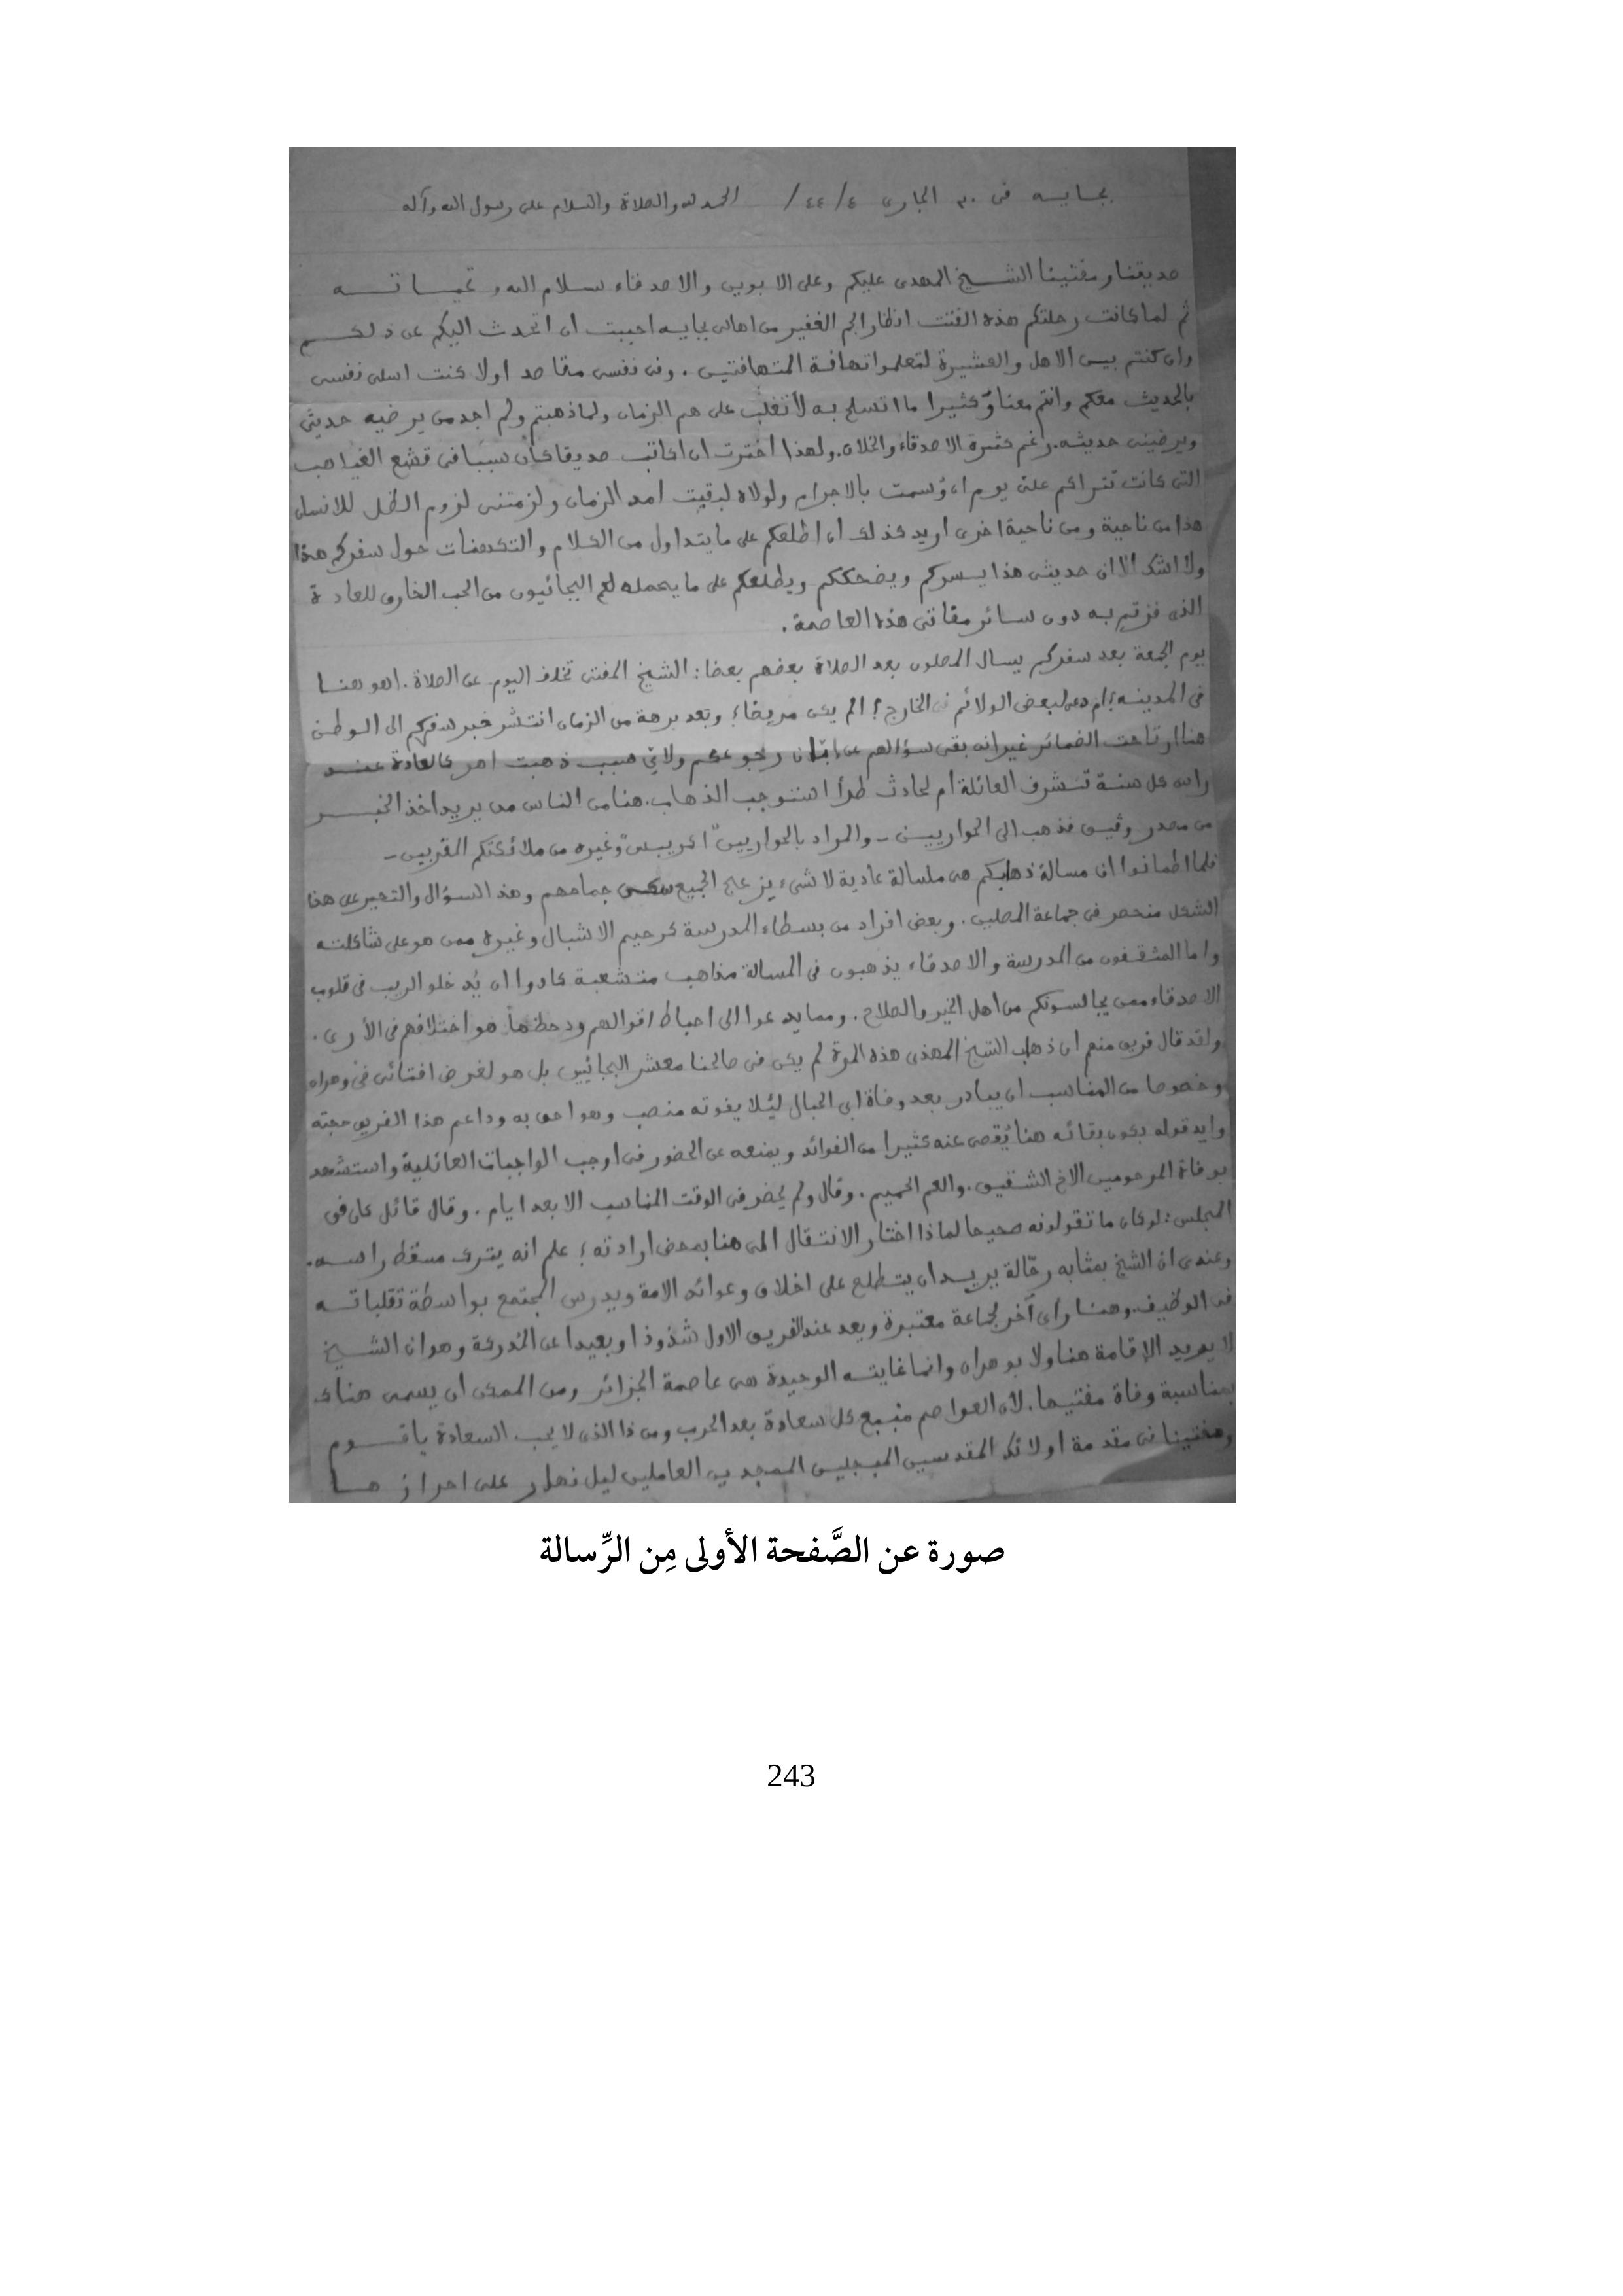 بجايه فى ٣٠ الجارى ٤/ ٤٤/ الحمد لله والصلاة والسلام على رسول الله وآله
صديقنا ومفتينا الشيخ المهدى عليكم وعلى الابوين والاصدقاء سلام الله وتحياته
ثم لما كانت رحلتكم هذه الفتت انظار الجم الغفير من اهالى بجايه احببت ان اتحدث اليكم عن ذلكم
وان كنتم بين الاهل والعشيرة لتعلموا تهافة المتهافتين . وفى نفسى مقاصد اولا كنت اسلى نفسى
بالحديث معكم وانتم معنا وكثيرا ما اتسلح به لأتغلب على هم الزمان ولما ذهبتم ولم اجد من يرضيه حديثى
ويرضينى حديثه. رغم كثرة الاصدقاء والخلان. ولهذا اخترت ان اكاتب صديقا كان سببا فى قشع الغياهب
التى كانت تتراكم على يوم ان وُسمت بالاجرام ولولاه لبقيت امد الزمان ولزمتنى لزوم الظل للانسان
هذا من ناحية ومن ناحية اخرى اريد كذلك ان اطلعكم على ما يتداول من الكلام والتكهنات حول سفركم هذا
ولا اشك الا ان حديثى هذا يسركم ويضحككم ويطلعكم على ما يحمله لكم البجائيون من الحب الخارق للعادة
الذى فزتم به دون سائر مفاتى هذه العاصمة .
يوم الجمعة بعد سفركم يسال المصلون بعد الصلاة بعضهم بعضا : الشيخ المفتى تخلف اليوم عن الصلاة . اهو هنا
فى المدينه ؟ ام دعى لبعض الولائم فى الخارج ؟ الم يكن مريضا ؟ وبعد برهة من الزمان انتشر خبر سفركم الى الوطن
هنا ارتاحت الضمائر غير انه بقى سؤالهم عن ابّان رجوعكم ولاي سبب ذهبت اهى كالعادة عند
راس كل سنة تشرف العائلة ام لحادث طرأ استوجب الذهاب. هنا من الناس من يريد اخذ الخبر
من مصدر وثيق فذهب الى الحواريين - والمراد بالحواريين " اكريبس " وغيره من ملائكتكم المقربين -
فلما اطمانوا ان مسالة ذهابكم هى مسالة عادية لا شىء يزعج الجميع سكن جماحهم وهذا السؤال والتعبير على هذا
الشكل منحصر فى جماعة المصلين . وبعض افراد من بسطاء المدرسة كرحيم الاشبال وغيره ممن هو على شاكلته
واما المثقفون من المدرسة والاصدقاء يذهبون فى المسالة مذاهب متشعبة كادوا ان يُدخلو الريب فى قلوب
الاصدقاء ممن يجالسونكم من اهل الخير والصلاح . ومما يدعوا الى احباط اقوالهم ودحظها هو اختلافهم فى الأرى .
ولقد قال فريق منهم ان ذهاب الشيخ المهدى هذه المرة لم يكن فى صالحنا معشر البجائيين بل هو لغرض افتائى فى وهران
وخصوصا من المناسب ان يبادر بعد وفاة ابى الحبال ليئلا يفوته منصب وهو احق به وداعم هذا الفريق حجته
وايد قوله بكون بقائه هنا يُقصى عنه كثيرا من الفوائد ويمنعه عن الحضور فى اوجب الواجبات العائلية واستشهد
بوفاة المرحومين الاخ الشقيق . والعم الحميم . وقال ولم يحضر فى الوقت المناسب الا بعد ايام . وقال قائل كان فى
المجلس : لو كان ما تقولونه صحيحا لماذا اختار الانتقال الى هنا بمحض ارادته ؛ علم انه يترك مسقط راسه .
وعندى ان الشيخ بمثابه رحّالة يريد ان يتطلع على اخلاق وعوائد الامة ويدرس المجتمع بواسطة تقلباته
فى الوظيف. وهنا راى آخر لجماعة معتبرة ويعد عند الفريق الاول شذوذا وبعيدا عن المدركة وهو ان الشيخ
لا يريد الإقامة هنا ولا بوهران وانما غايته الوحيدة هى عاصمة الجزائر ومن الممكن ان يسمى هناك
بمناسبة وفاة مفتيها . لان العواصم منبع كل سعادة بعد الحرب ومن ذا الذى لا يحب السعادة يا قوم
ومفتينا فى مقدمة اولائك المقدسين المبجلين الممجدين العاملين ليل نهار على احرازها
صورة عن الصَّفحة الأولى مِن الرِّسالة
243